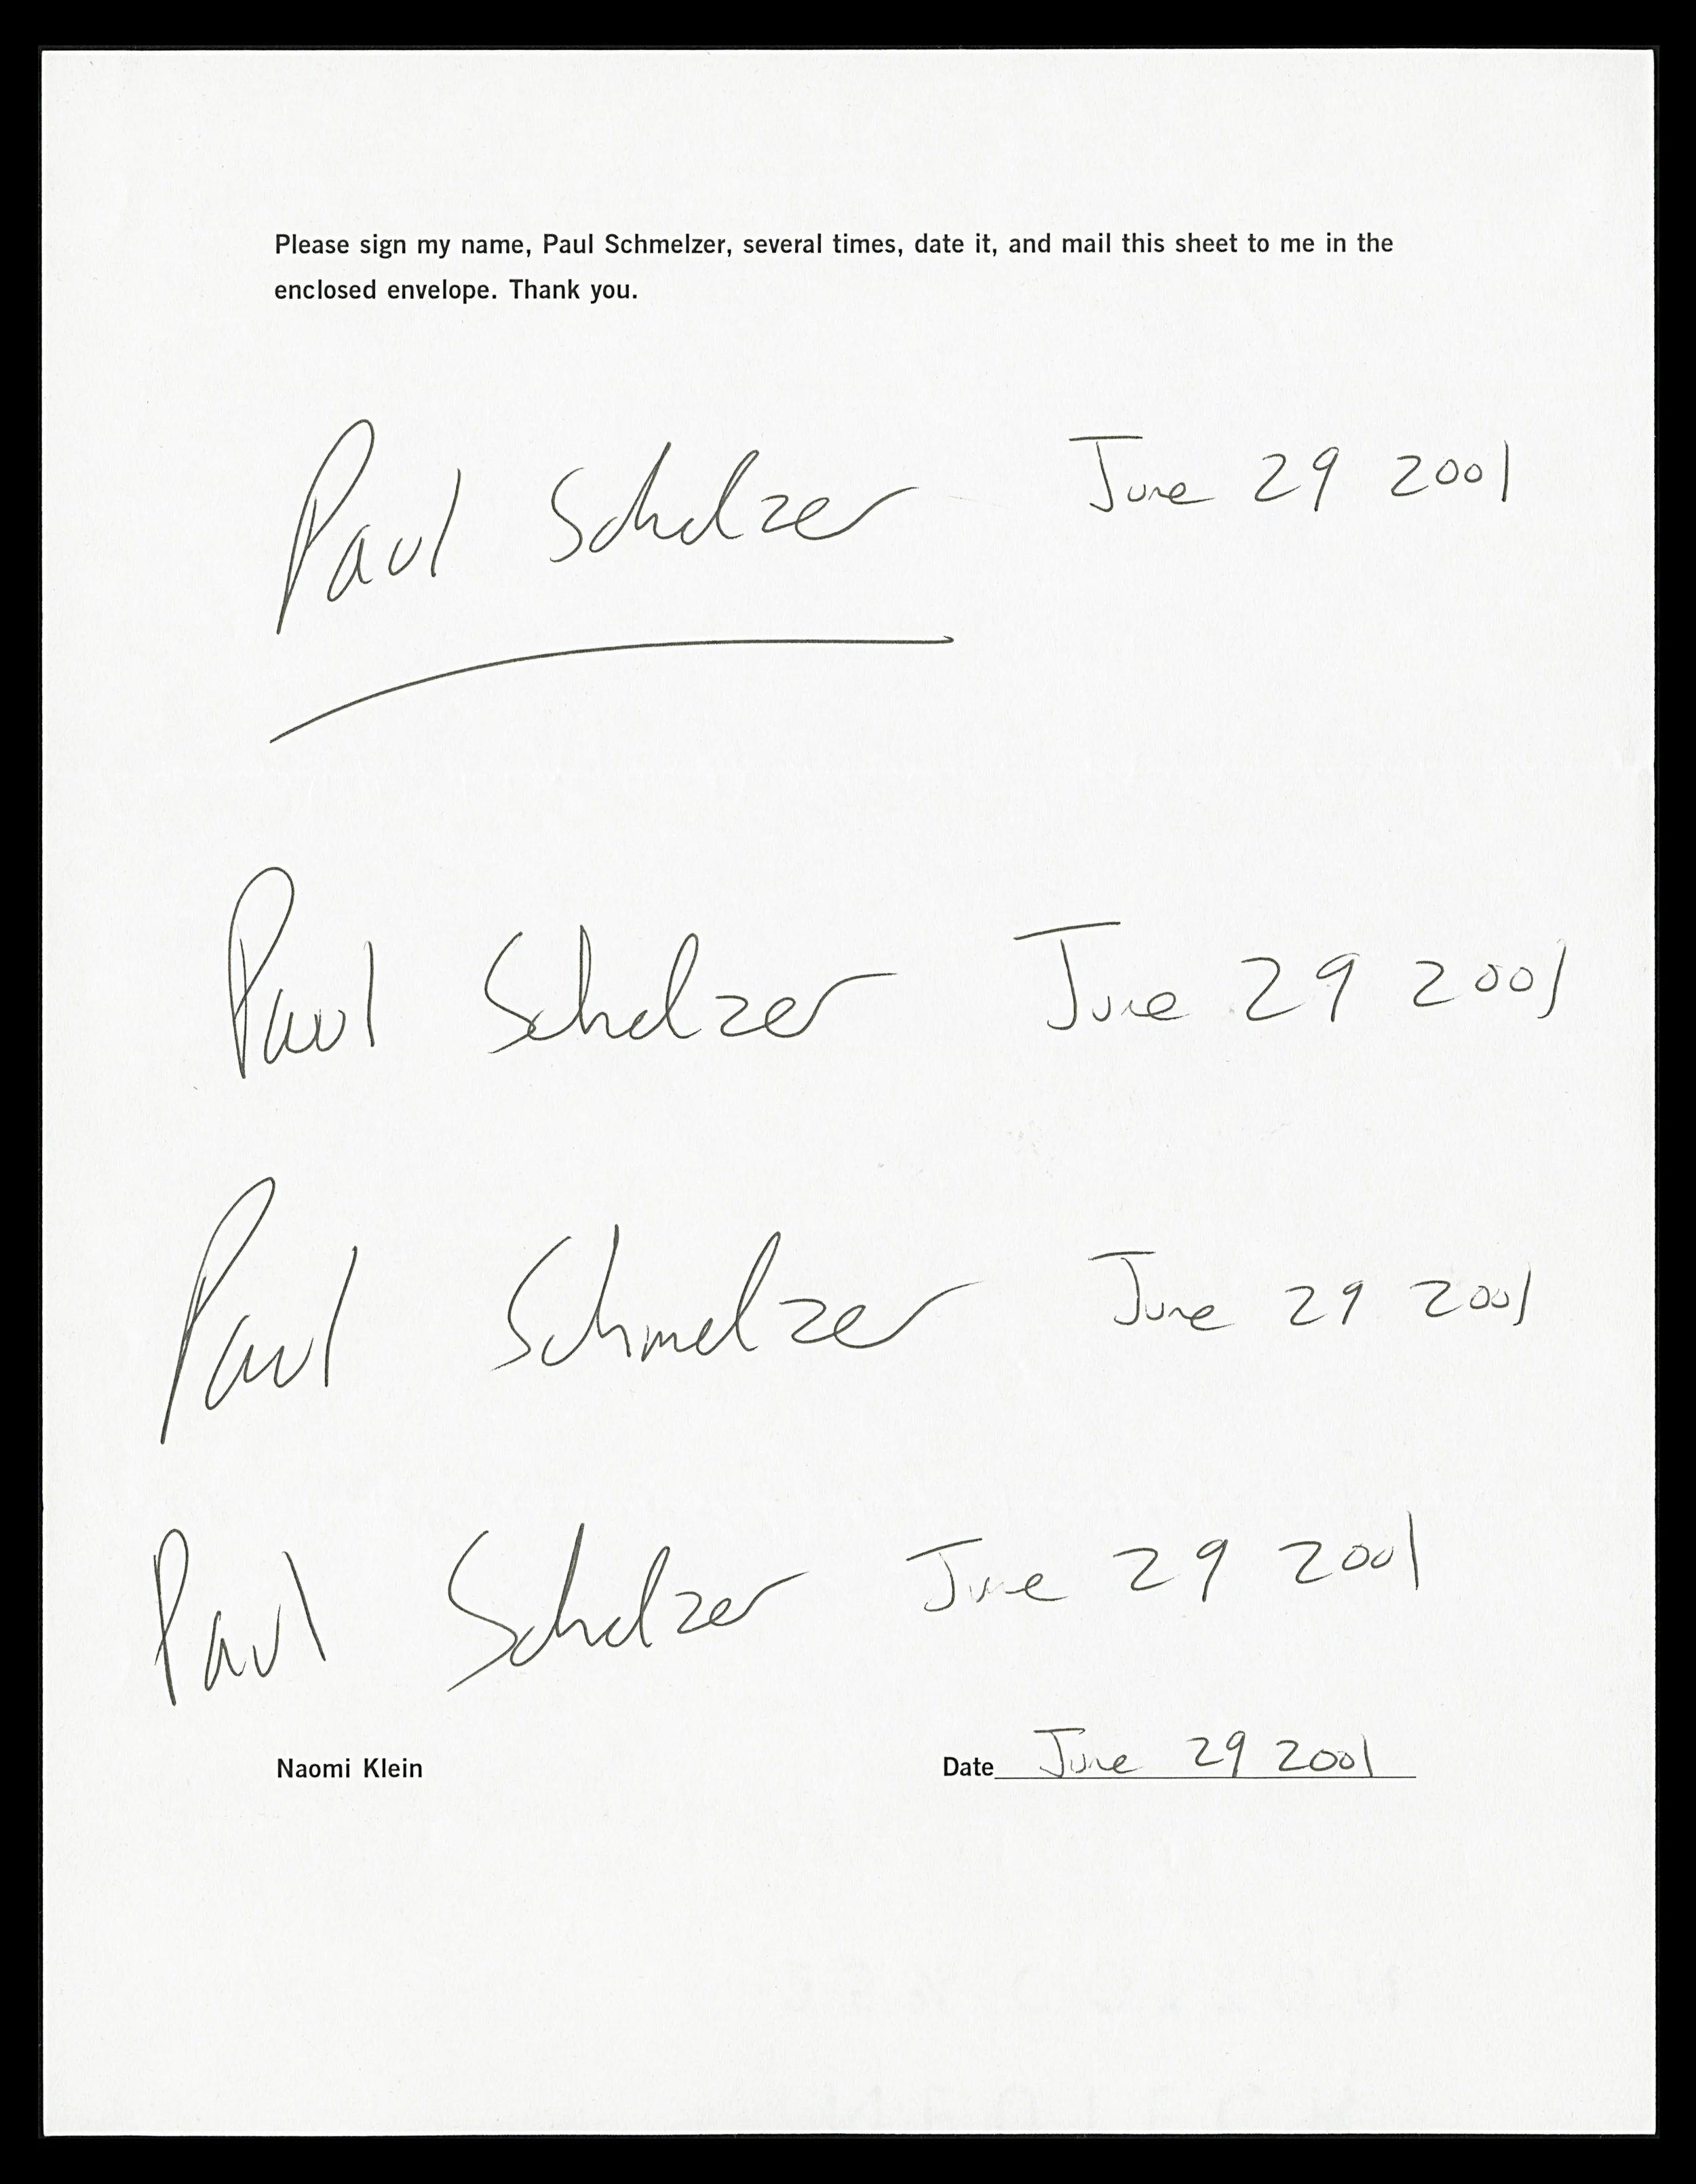 Please sign my name, Paul Schmelzer, several times, date it, and mail this sheet to me in the
enclosed envelope. Thank you.
Paul Schelzer June 29 2001
Paul Schelzer June 29 2001
Paul Schmelzer June 29 2001
Paul Schelzer June 29 2001
Naomi Klein Date June 29 2001